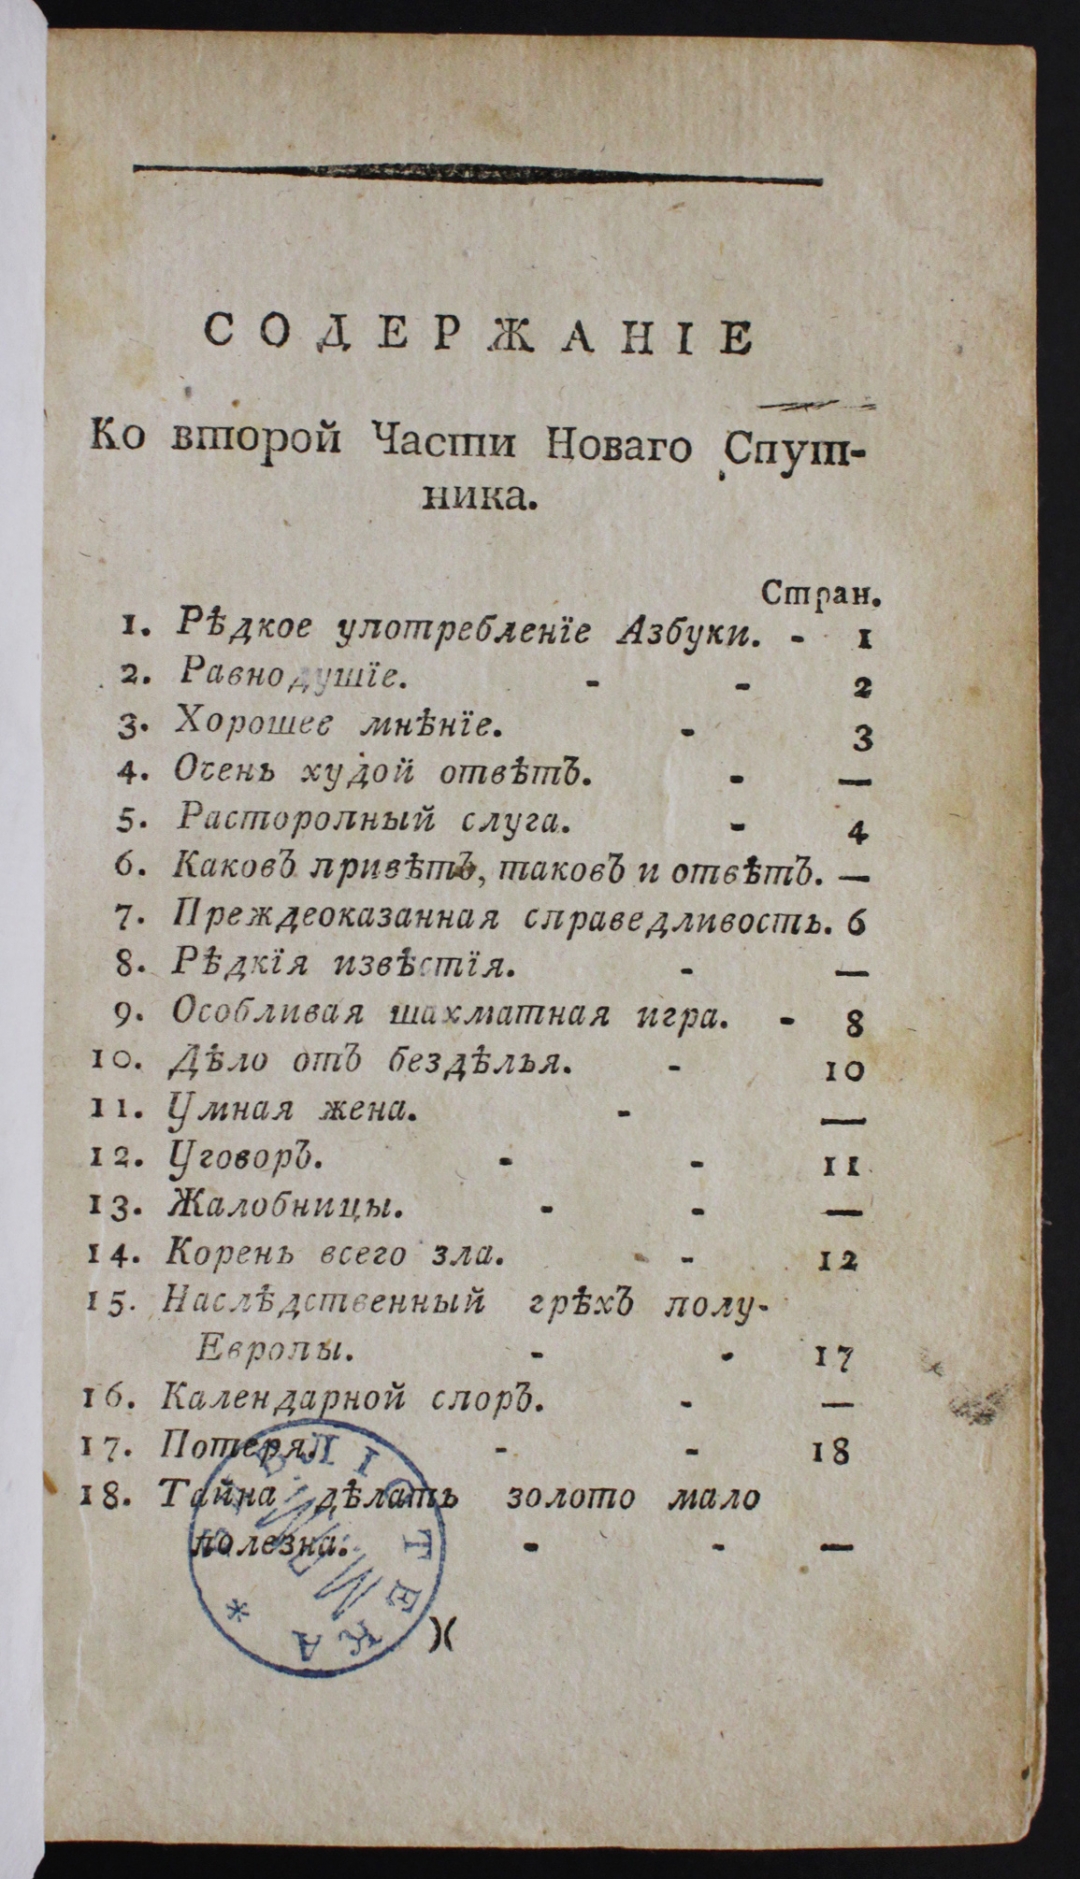 СОДЕРЖАНІЕ
Ко второй Части Новаго Спут-
ника.
Стран.
1. Рѣдкое употребленїе Азбуки. - 1
2. Равнодушїе. - - 2
3. Хорошее мнѣнїе. - 3
4. Очень худой отвѣтъ. - —
5. Расторопный слуга. - 4
6. Каковъ привѣтъ, таковъ и отвѣтъ. —
7. Преждеоказанная справедливость. 6
8. Рѣдкїя извѣстїя. - —
9. Особливая шахматная игра. - 8
10. Дѣло отъ бездѣлья. - 10
11. Умная жена. - —
12. Уговоръ. - - 11
13. Жалобницы. - - —
14. Корень всего зла. - - 12
15. Наслѣдственный грѣхъ полу-
Европы. - - 17
16. Календарной споръ. - —
17. Потеря. - - 18
18. Тайна дѣлать золото мало
полезна. - - —
)(